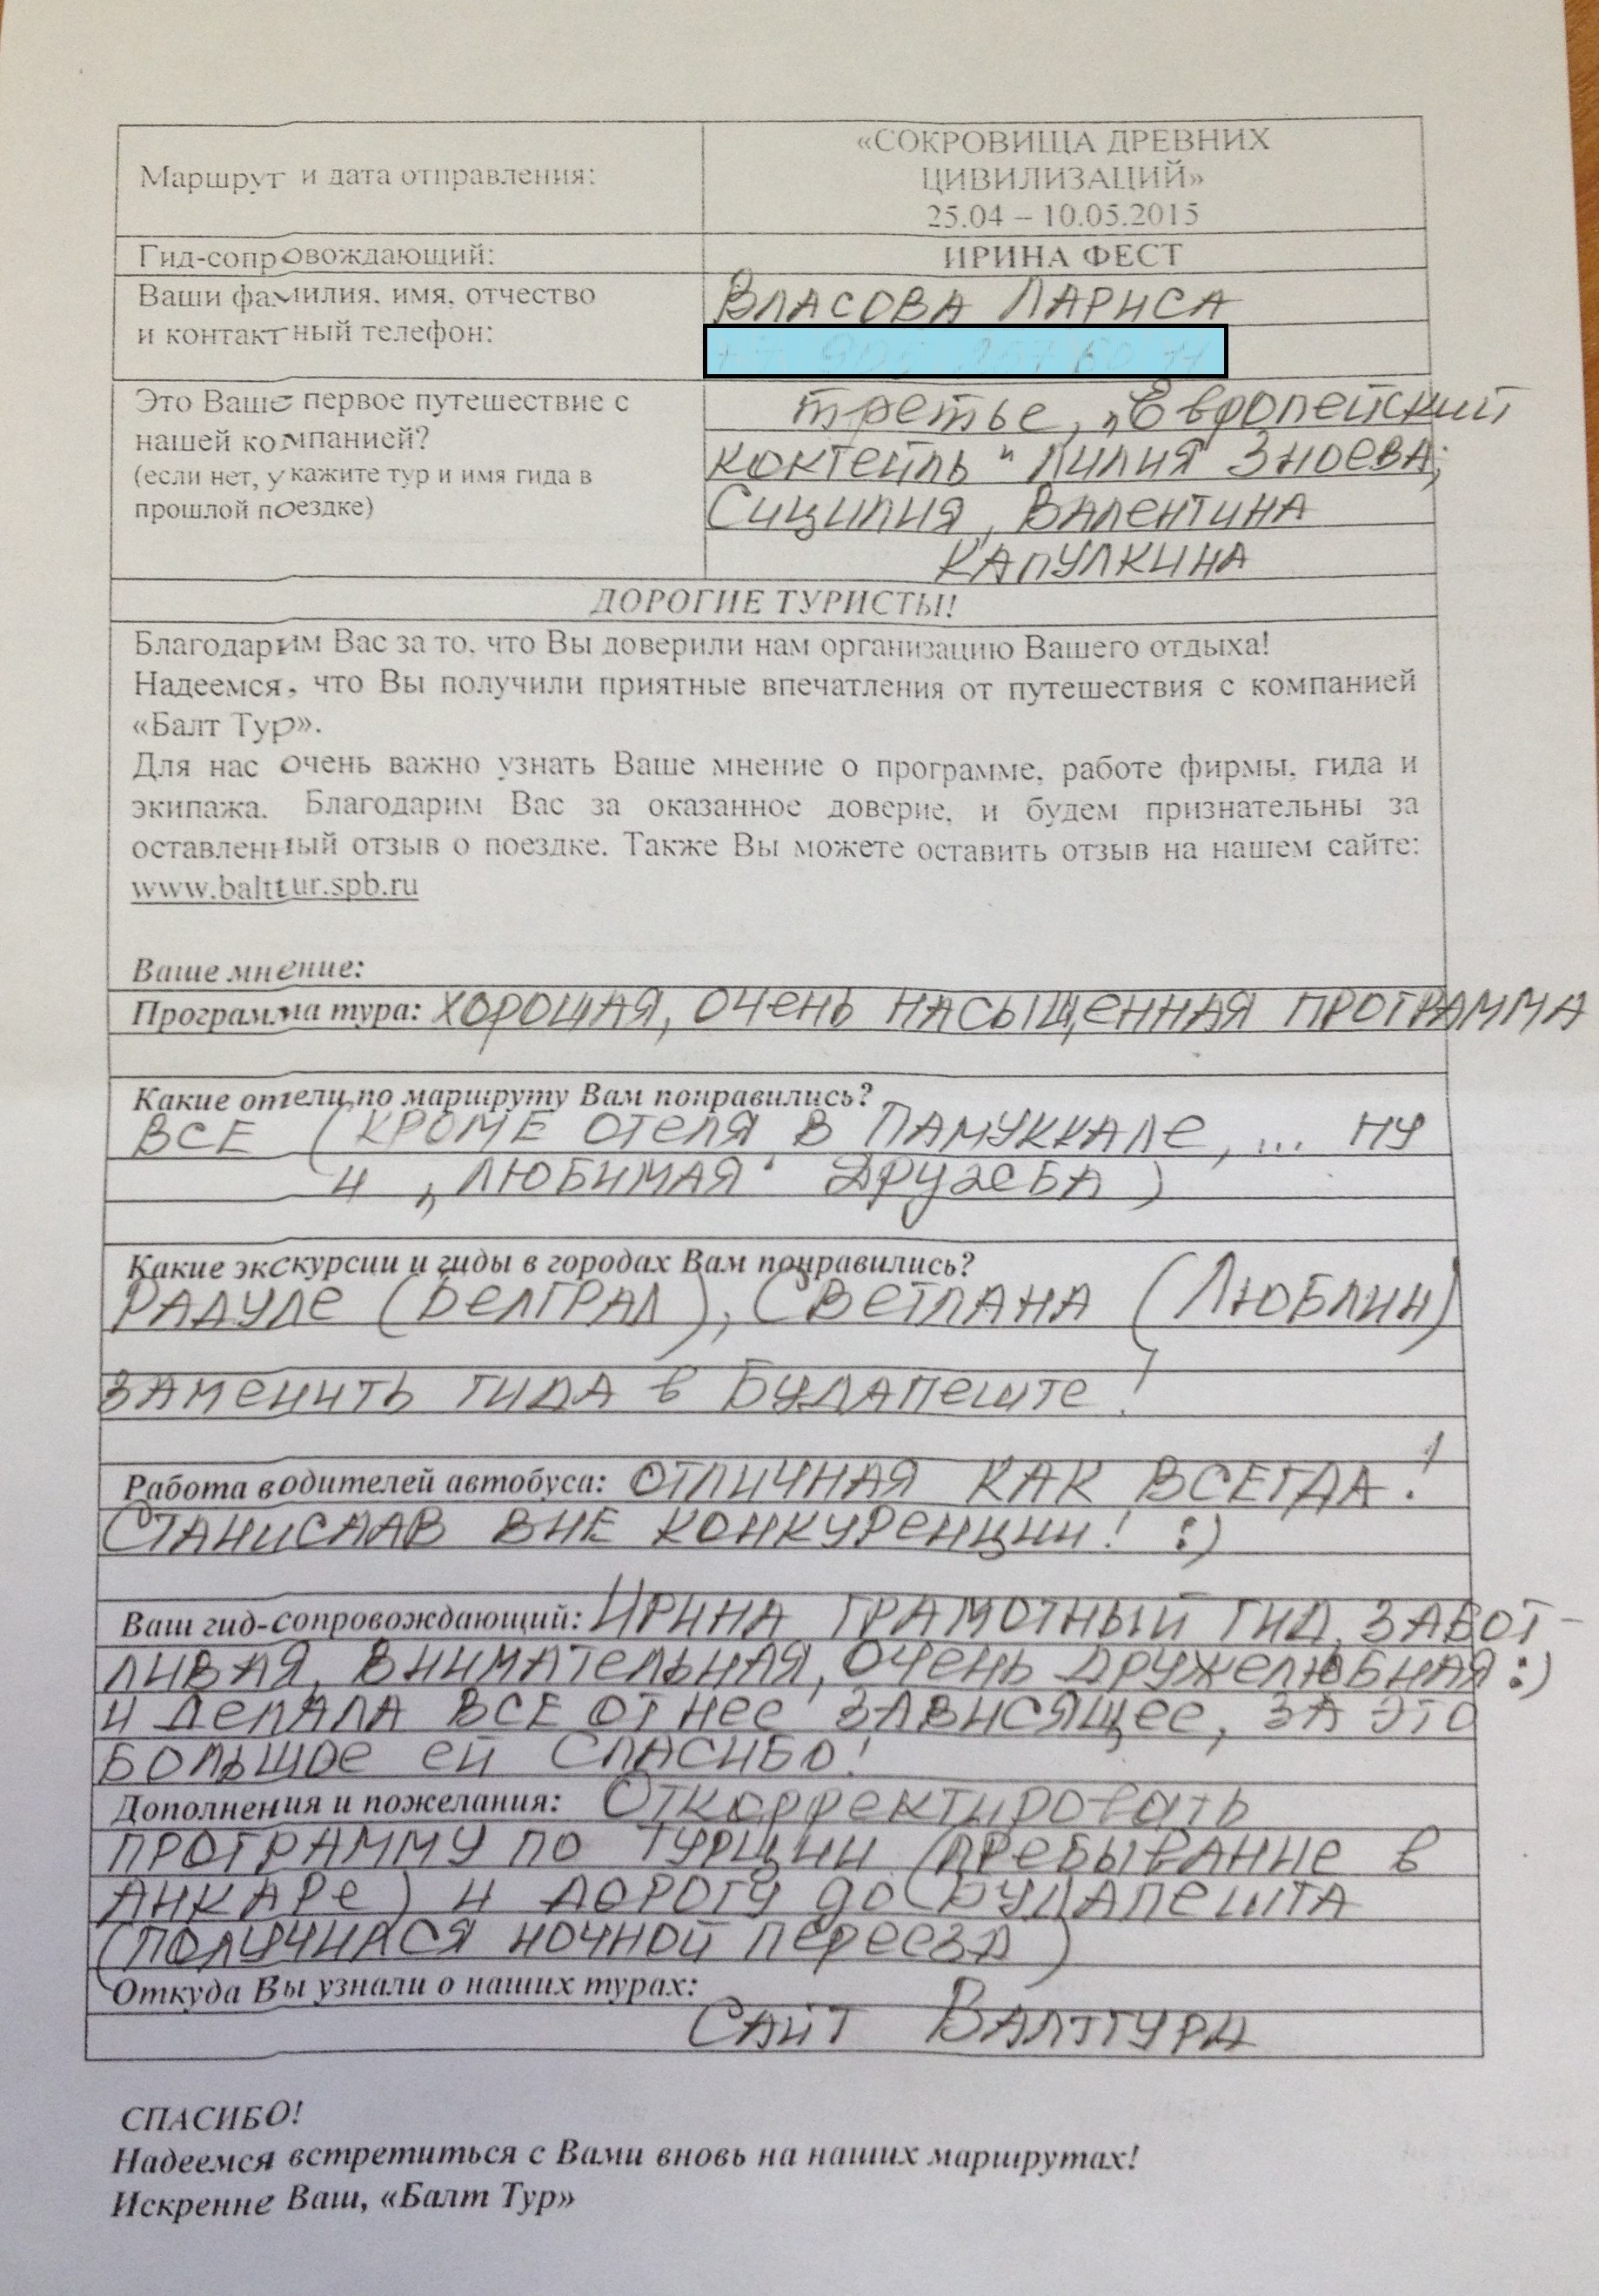 Маршрут и дата отправления:
«СОКРОВИЩА ДРЕВНИХ
ЦИВИЛИЗАЦИЙ»
25.04 – 10.05.2015
Гид-сопровождающий:
ИРИНА ФЕСТ
Ваши фамилия, имя, отчество
и контактный телефон:
ВЛАСОВА ЛАРИСА
Это Ваше первое путешествие с
нашей компанией?
(если нет, укажите тур и имя гида в
прошлой поездке)
третье, „Европейский
коктейль" Лилия Зноева;
Сицилия, Валентина
Капулкина
ДОРОГИЕ ТУРИСТЫ!
Благодарим Вас за то, что Вы доверили нам организацию Вашего отдыха!
Надеемся, что Вы получили приятные впечатления от путешествия с компанией
«Балт Тур».
Для нас очень важно узнать Ваше мнение о программе, работе фирмы, гида и
экипажа. Благодарим Вас за оказанное доверие, и будем признательны за
оставленный отзыв о поездке. Также Вы можете оставить отзыв на нашем сайте:
www.balttur.spb.ru
Ваше мнение:
Программа тура: хорошая, очень насыщенная программа
Какие отели по маршруту Вам понравились?
ВСЕ (кроме отеля в Памуккале, ... ну
и „любимая" Дружба)
Какие экскурсии и гиды в городах Вам понравились?
Радуле (Белград), Светлана (Люблин)
заменить гида в Будапеште!
Работа водителей автобуса: отличная как всегда!
Станислав вне конкуренции! :)
Ваш гид-сопровождающий: Ирина грамотный гид, забот-
ливая, внимательная, очень дружелюбная :)
и делала все от нее зависящее, за это
большое ей спасибо!
Дополнения и пожелания: Откорректировать
программу по Турции (пребывание в
Анкаре) и дорогу до Будапешта
(получился ночной переезд)
Откуда Вы узнали о наших турах:
Сайт Балттура
СПАСИБО!
Надеемся встретиться с Вами вновь на наших маршрутах!
Искренне Ваш, «Балт Тур»